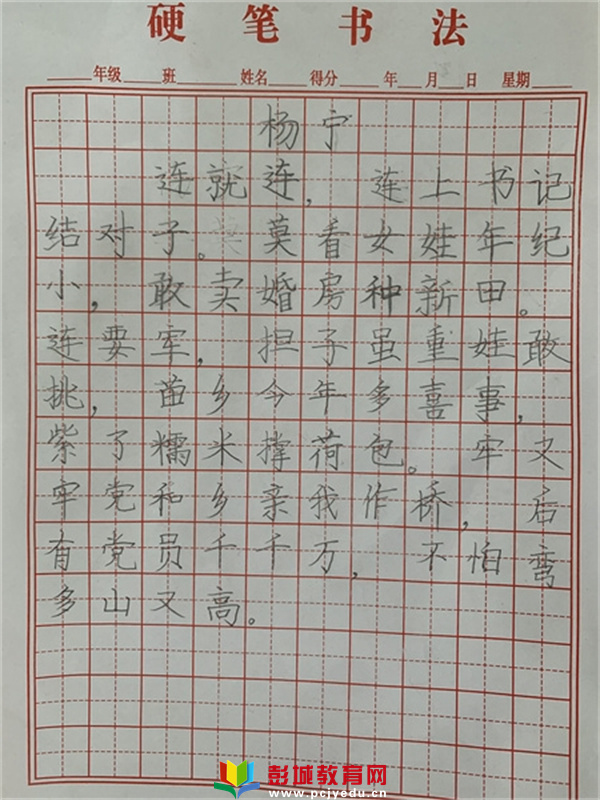 硬笔书法
____年级____班 ____姓名____得分____年____月____日 星期____
杨宁
连就连，连上书记
结对子。莫看女娃年纪
小，敢卖婚房种新田。
连要牢，担子虽重娃敢
挑，苗乡今年多喜事，
紫了糯米撑荷包。牢又
牢党和乡亲我作桥，后
有党员千千万，不怕弯
多山又高。
彭城教育网
www.pcjyedu.cn